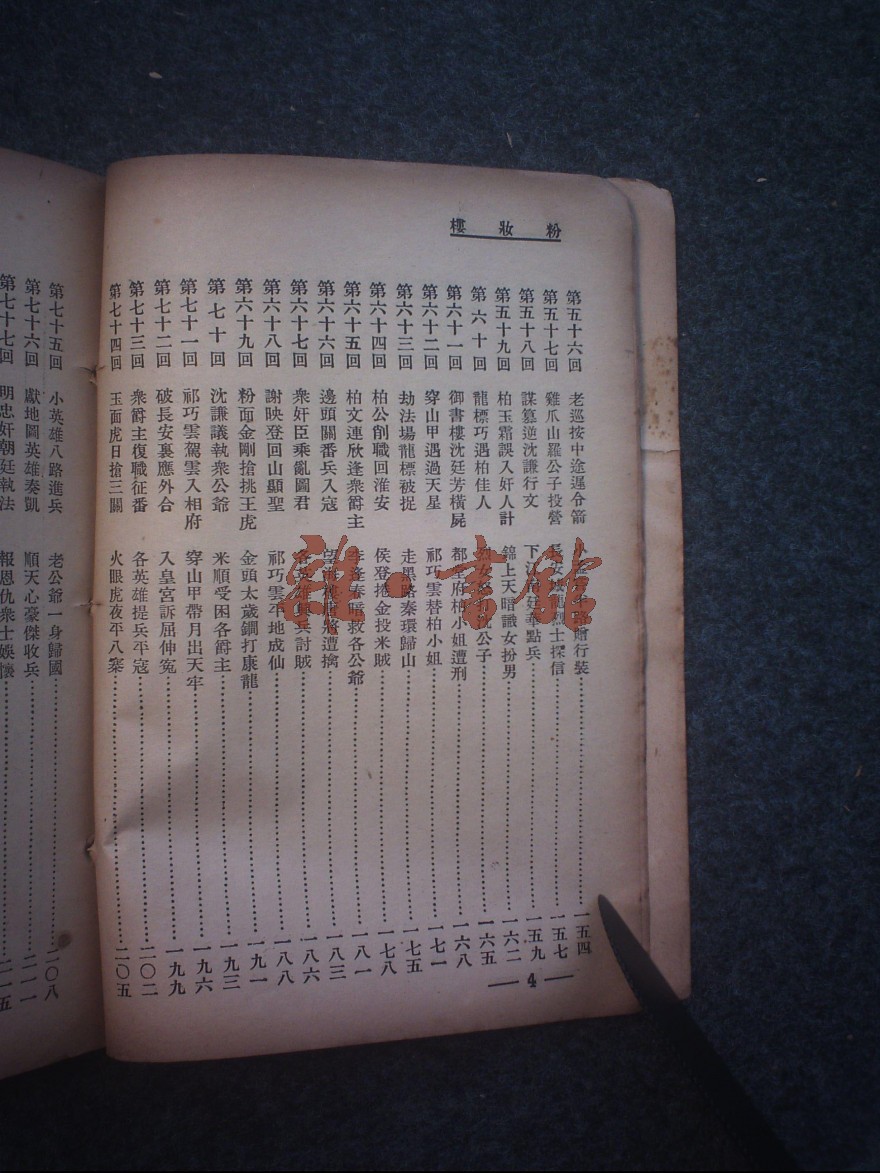 粉妝樓
第五十六回 老巡按中途遲令箭 路贈行裝 一五四
第五十七回 雞爪山羅公子投營 長安城 烈士探信 一五七
第五十八回 謀篡逆沈謙行文 下江 廷華點兵 一五九
第五十九回 柏玉霜誤入奸人計 錦上天暗識女扮男 一六二
第六十回 龍標巧遇柏佳人 烈女怒打沈公子 一六五
第六十一回 御書樓沈廷芳橫屍 都堂府柏小姐遭刑 一六八
第六十二回 穿山甲遇過天星 祁巧雲替柏小姐 一七一
第六十三回 劫法場龍標被捉 走黑路秦環歸山 一七五
第六十四回 柏公削職回淮安 侯登捲金投米賊 一七八
第六十五回 柏文連欣逢衆爵主 李逢春暗救各公爺 一八一
第六十六回 邊頭關番兵入寇 望海樓唐將遭擒 一八三
第六十七回 衆奸臣乘亂圖君 各英雄興兵討賊 一八六
第六十八回 謝映登回山顯聖 祁巧雲平地成仙 一八八
第六十九回 粉面金剛搶挑王虎 金頭太歲鐧打康龍 一九一
第七十回 沈謙議執衆公爺 米順受困各爵主 一九三
第七十一回 祁巧雲駕雲入相府 穿山甲帶月出天牢 一九六
第七十二回 破長安裏應外合 入皇宮訴屈伸冤 一九九
第七十三回 衆爵主復職征番 各英雄提兵平寇 二〇二
第七十四回 玉面虎日搶三關 火眼虎夜平八寨 二〇五
4
第七十五回 小英雄八路進兵 老公爺一身歸國 二〇八
第七十六回 獻地圖英雄奏凱 順天心豪傑收兵 二一一
第七十七回 明忠奸朝廷執法 報恩仇衆士娛懷 二一五
雜·書館